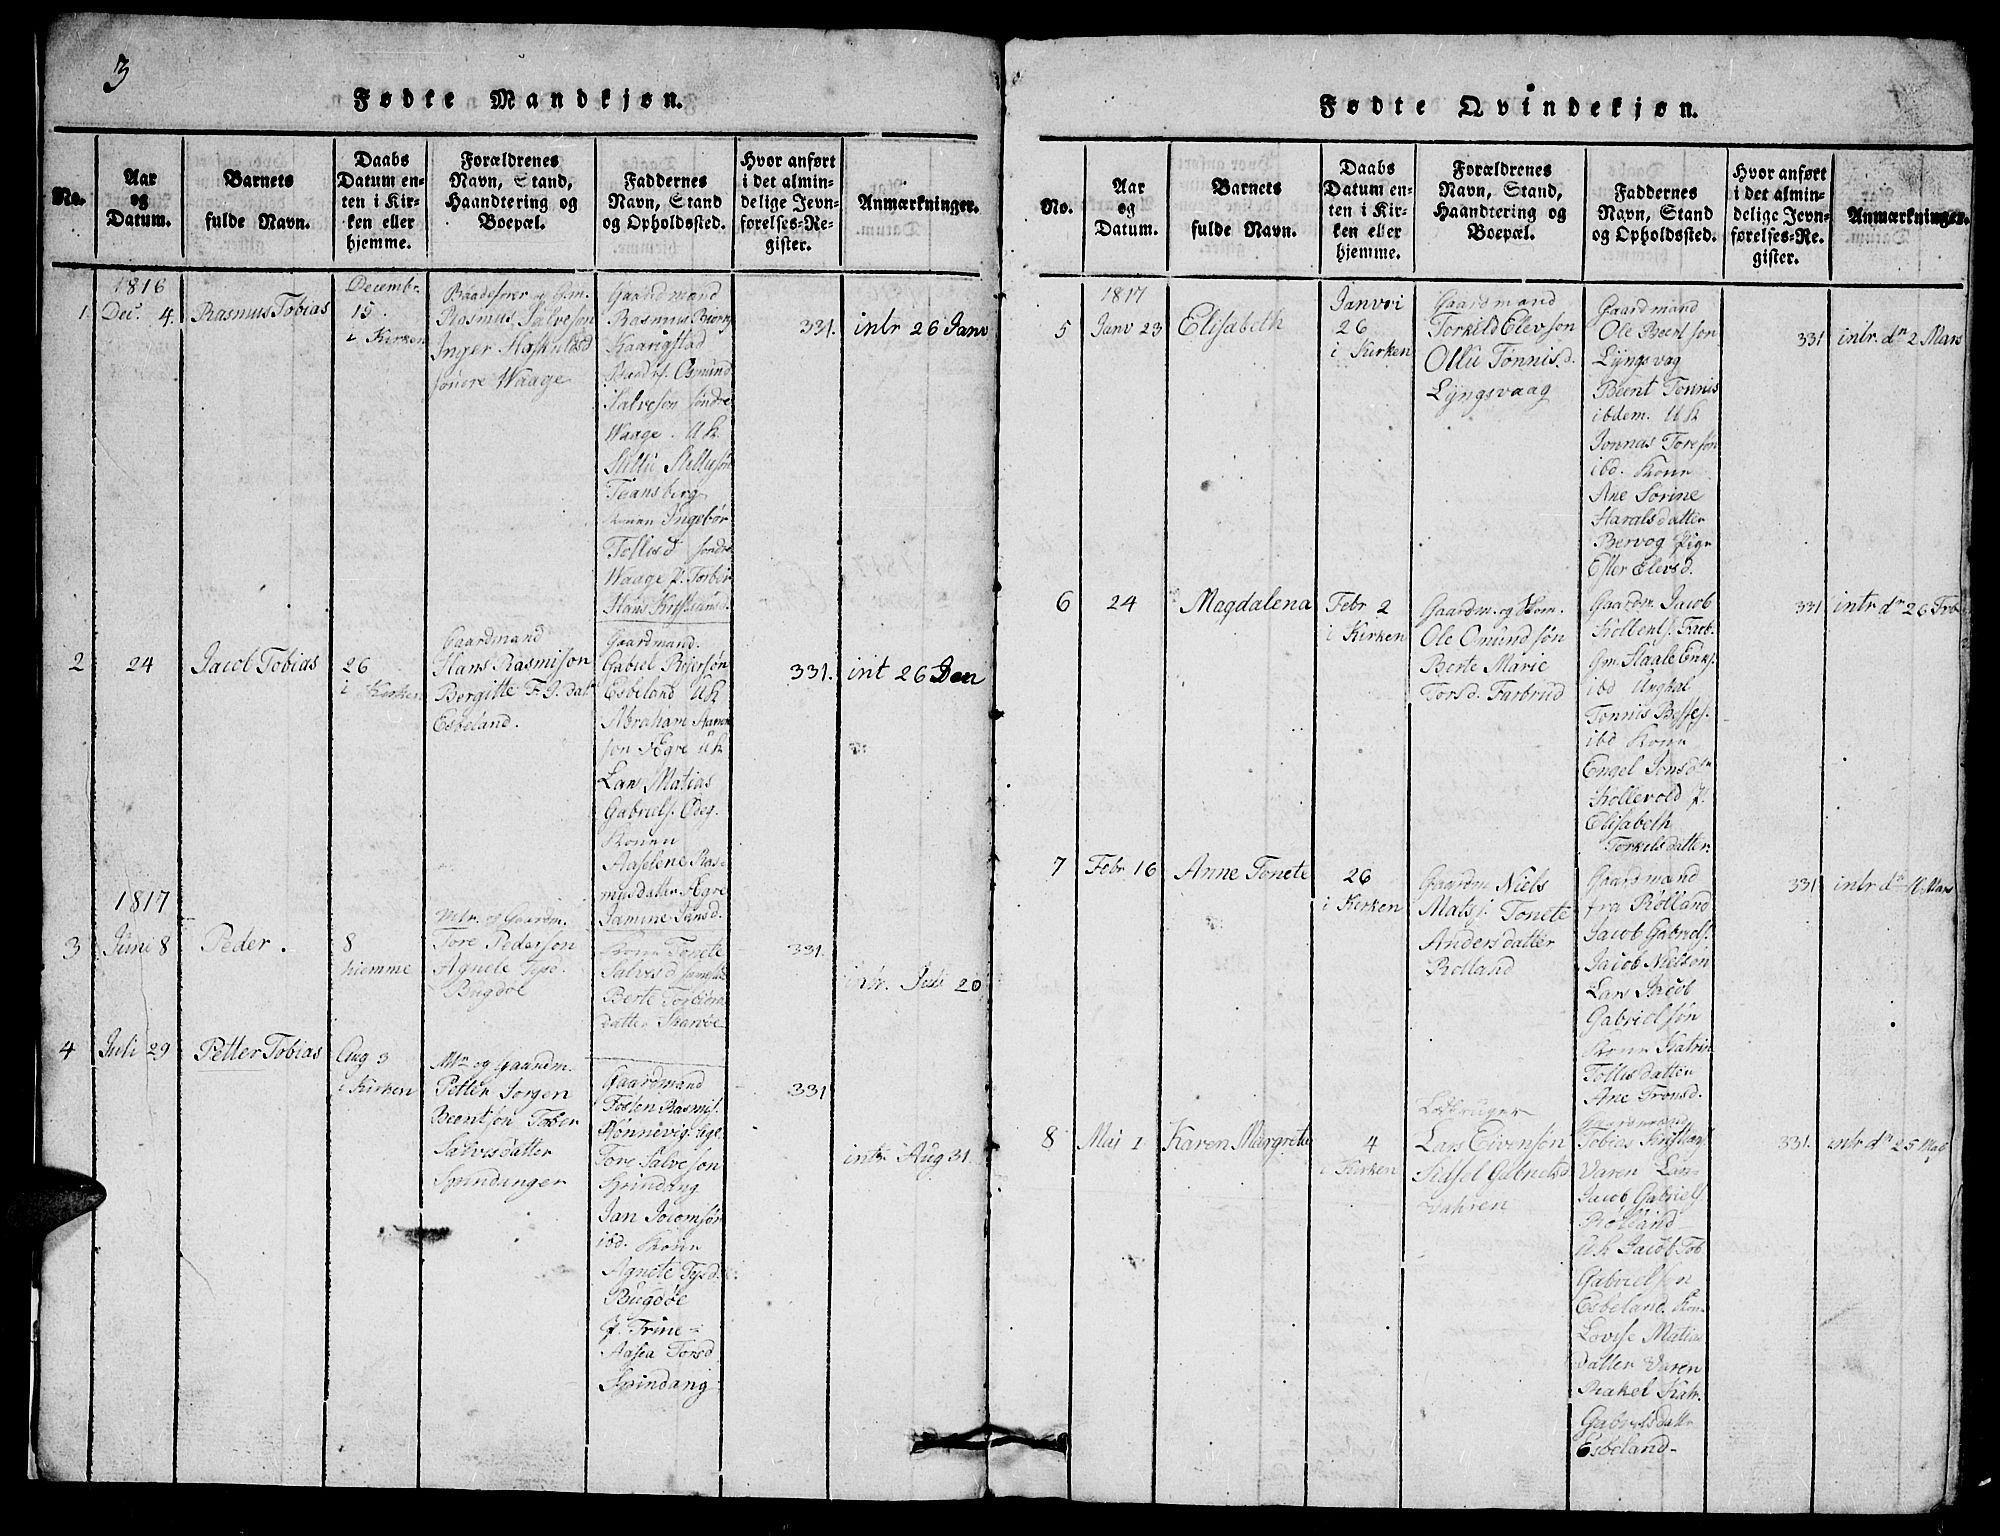 3
Fødte Mandkjøn.
No.
Aar
og
Datum.
Barnets
fulde Navn.
Daabs
Datum en-
ten i Kir-
ken eller
hjemme.
Forældrenes
Navn, Stand,
Haandtering og
Boepæl.
Faddernes
Navn, Stand
og Opholdssted.
Hvor anført
i det almin-
delige Jevn-
førelses-Re-
gister.
Anmærkninger.
1
1816
Dec. 4
Rasmus Tobias
Decembr.
15.
i Kirken
Baadsfører og Gm.
Rasmus Salveson
Inger Haskuldsd
søndre Waage
Gaardmand
Rasmus
Kaarigstad
Osmund
Salveson søndre
Waage. U k
Teansberg
Konen Ingebor
Tollisd søndr
Waage P. Torbor
Hans
331.
intr 26 Janv
2
24
Jacob Tobias
26
i Kirken
Gaardmand
Hans Rasmison
Bergitte F. J. dat
Esbeland.
Gaardmand.
Gabriel Reiersøn
Esbeland Uk
Abraham Aanen
son Ægre uk
Lars Matias
Gabriels. Odeg.
Konen
Aaselene Ras-
musdatter Ægre
Jamine Jansd.
331.
int 26 Dec
1817
3
Juni 8
Peder.
8
hiemme
Mtr. og Gaardm.
Tore Pederson
Agnete Tysd.
Bugdøe
Konen Tonete
Salvesd
Berte Torbiørn
datter Skarvøe
331.
intr. Juli 20
4
Juli 29
Petter Tobias
Aug 3
i Kirken
Mtr og Gaardm.
Petter Jorgen
Berntson Tobor
Salvesdatter
Spindinger
Gaardmand
Tosten Rasmis.
Tore Salveson
Spindang
Jan Jocomsør
ibd. Konen
Agnete Tysd.
Bugdøe
P. Trine
Aasea Torsd
Spindang
331
intr Aug 31.
Fødte Qvindekjøn.
No.
Aar
og
Datum.
Barnets
fulde Navn.
Daabs
Datum en-
ten i Kir-
ken eller
hjemme.
Forældrenes
Navn, Stand,
Haandtering og
Boepæl.
Faddernes
Navn, Stand
og Opholdssted.
Hvor anført
i det almin-
delige Jevn-
førelses-Re-
gister.
Anmærkninger.
5
1817
Janv 23
Elisabeth
Janvri
26
i Kirken
Gaardmand
Torkild Elevson
Ollu Tonnis d.
Lyngsvaag
Gaardmand
Ole Berntson
Lyngsvag
Beent Tonnis
ibdem. U k
Jonnas Toreson
ibd. Konn
Ane Sorine
Haralsdatter
Bervog Pige
Ester Elevsd.
331
intr. dn 2 Mars
6
24
Magdalena
Febr 2
i Kirken
Gaardm. og Skom.
Ole Omundsøn
Berte Marie
Torsd. Farbrud
Gaardm. Jacob
Gm Staale Eriks.
ibd Ungkal
Tonnis
ibd Konn
Engel Jonsdtr
Kollevold P.
Elisabeth
Torkelsdatter
331
intr dn 26 Feb
7
Febr 16
Anne Tonete
26
i Kirken
Gaardm. Niels
Matsj. Tonete
Andersdatter
Rolland
Gaardmand
fra Rølland
Jacob Gabriel.
Jacob Nielson
Lars Jacob
Gabrielson
Konn Katrin
Tollisdatter
Ane Tronsd.
331
intr dn 16 Mars
8
Maj 1
Karen Margrete
4
i Kirken
Lodbruger
Lars Eivensøn
Sidsel Gabrielsd
Vahren
Gaardmand
Tobias
Varen Lar-
Jacob Gabriels.
Rølland
Uk Jacob Tob
Gabrielson
Esbeland. Kon
Lovise Matia
datter Varen
Rakel Katr.
Gabrielsdatter
Esbeland
331.
intr dn 25 Mai